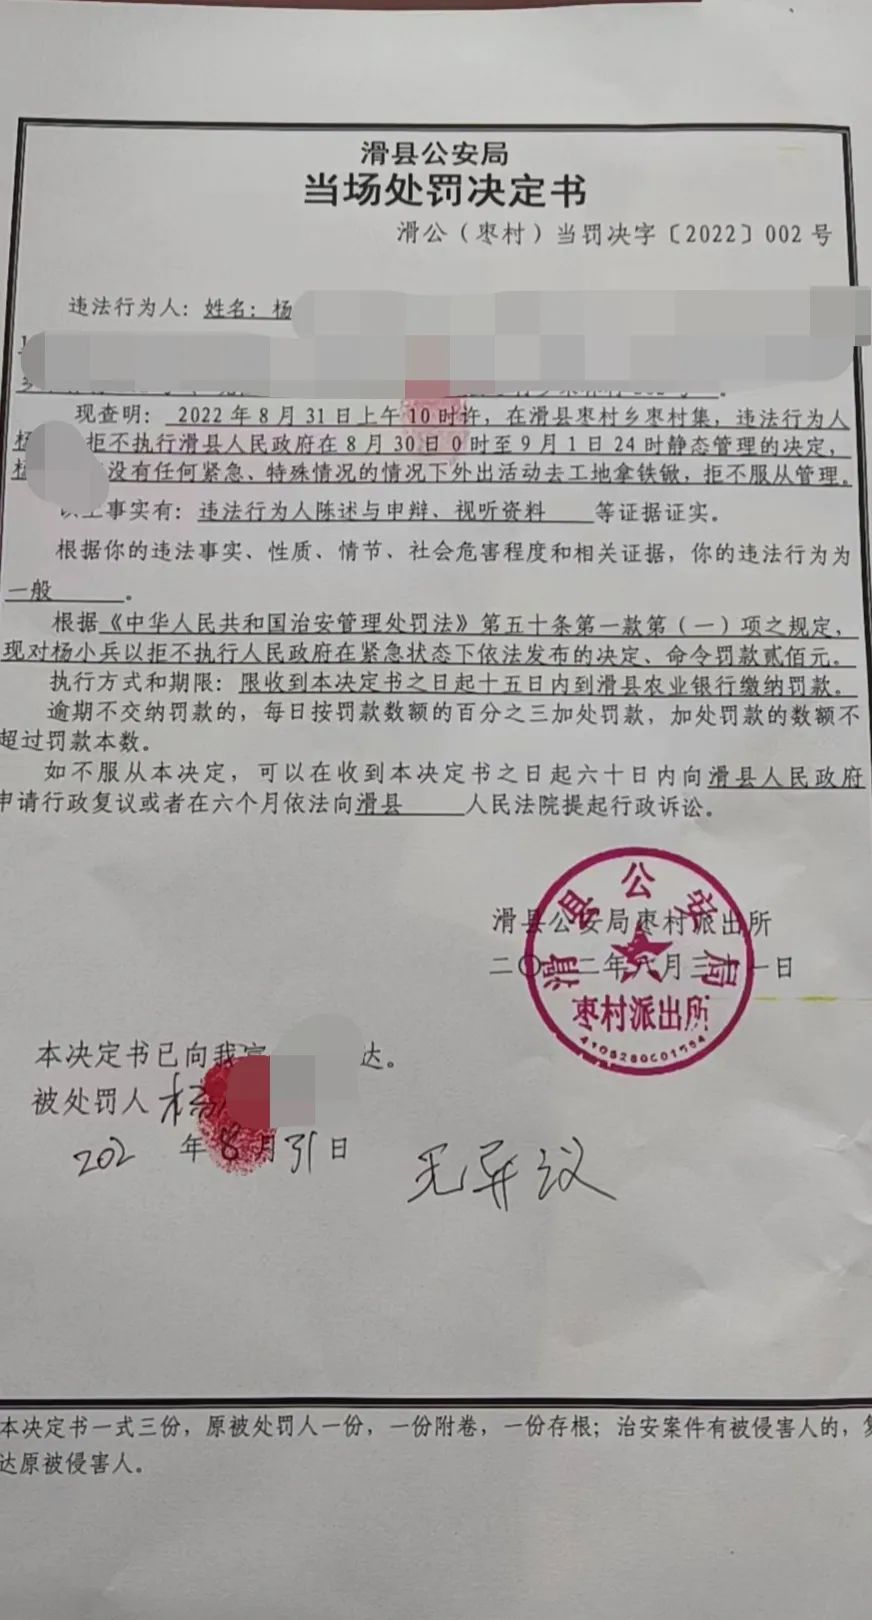 滑县公安局
当场处罚决定书
滑公（枣村）当罚决字〔2022〕002号
违法行为人：姓名：杨
现查明：2022年8月31日上午10时许，在滑县枣村乡枣村集，违法行为人
拒不执行滑县人民政府在8月30日0时至9月1日24时静态管理的决定，
没有任何紧急、特殊情况的情况下外出活动去工地拿铁锨，拒不服从管理。
以上事实有：违法行为人陈述与申辩、视听资料 等证据证实。
根据你的违法事实、性质、情节、社会危害程度和相关证据，你的违法行为为
一般 。
根据《中华人民共和国治安管理处罚法》第五十条第一款第（一）项之规定，
现对杨小兵以拒不执行人民政府在紧急状态下依法发布的决定、命令罚款贰佰元。
执行方式和期限：限收到本决定书之日起十五日内到滑县农业银行缴纳罚款。
逾期不交纳罚款的，每日按罚款数额的百分之三加处罚款，加处罚款的数额不
超过罚款本数。
如不服从本决定，可以在收到本决定书之日起六十日内向滑县人民政府
申请行政复议或者在六个月依法向滑县 人民法院提起行政诉讼。
滑县公安局枣村派出所
二〇二二年八月三十一日
滑县公安局
枣村派出所
本决定书已向我宣 达。
被处罚人 杨
202 年8月31日
无异议
本决定书一式三份，原被处罚人一份，一份附卷，一份存根；治安案件有被侵害人的，复
达原被侵害人。